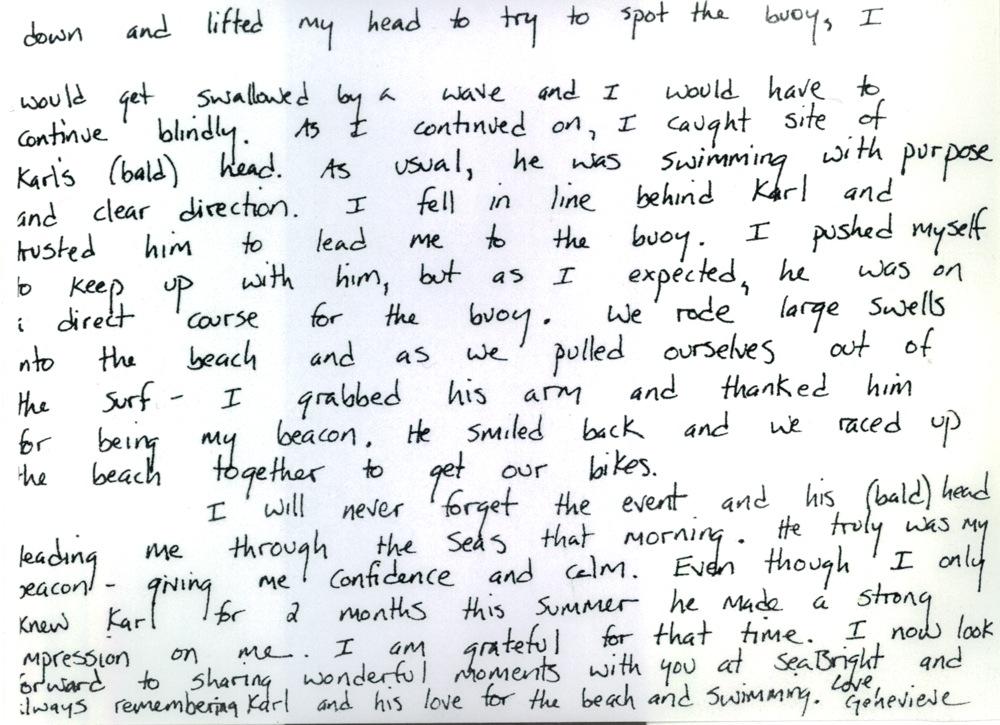 down and lifted my head to try to spot the buoy, I
would get swallowed by a wave and I would have to
continue blindly. As I continued on, I caught site of
Karl's (bald) head. As usual, he was swimming with purpose
and clear direction. I fell in line behind Karl and
trusted him to lead me to the buoy. I pushed myself
to keep up with him, but as I expected, he was on
i direct course for the buoy. We rode large swells
nto the beach and as we pulled ourselves out of
the surf - I grabbed his arm and thanked him
for being my beacon. He smiled back and we raced up
the beach together to get our bikes.
I will never forget the event and his (bald) head
leading me through the seas that morning. He truly was my
eacon - giving me confidence and calm. Even though I only
knew Karl for 2 months this summer he made a strong
mpression on me. I am grateful for that time. I now look
orward to sharing wonderful moments with you at SeaBright and
lways remembering Karl and his love for the beach and swimming. Love, Genevieve